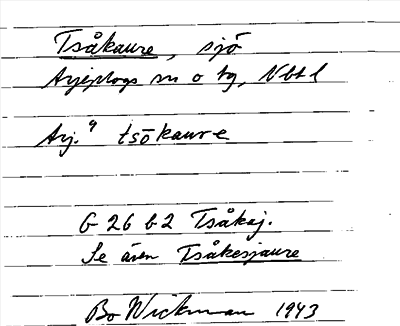 Tsåkaure, sjö
Arjeplogs sn o tg, Nbtl
Arj. 9 tsōkaure
G 26 b2 Tsåkaj.
Se även Tsåkesjaure
Bo Wickman 1943